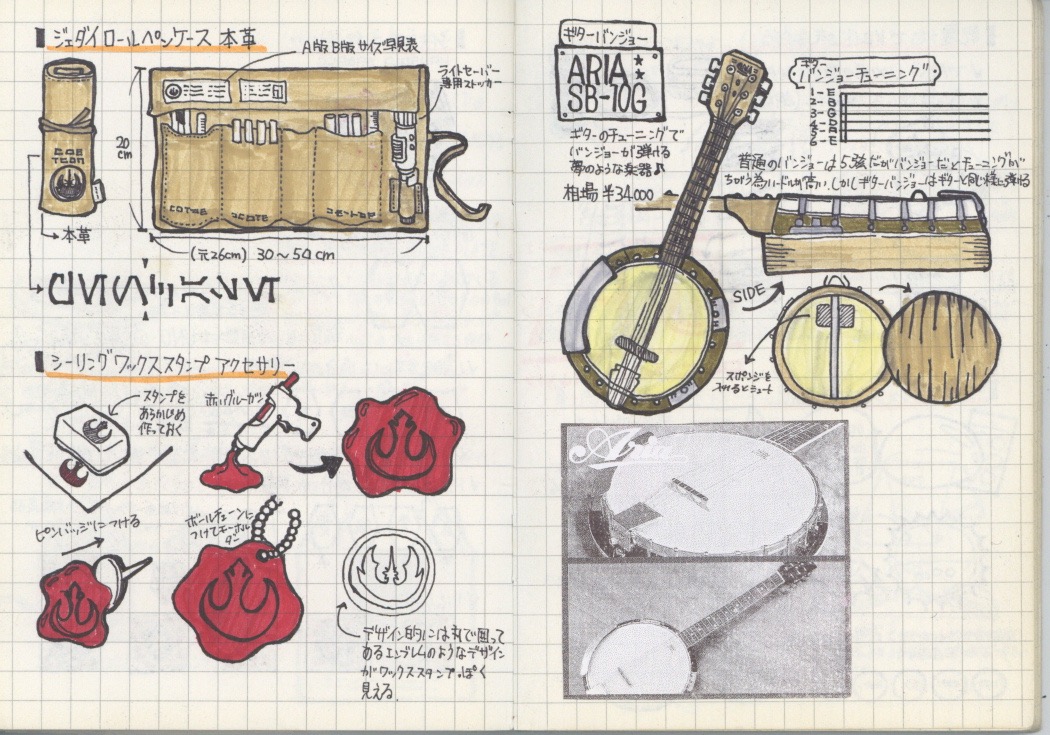 ジェダイロールペンケース 本革
A版B版サイズ早見表
ライトセーバー
専用ストッカー
20
cm
本革
(元26cm) 30〜54cm
シーリングワックススタンプ アクセサリー
スタンプを
あらかじめ
作っておく
赤いグルーガン
ピンバッジにつける
ボールチェーンに
つけてキーホル
ダー
デザイン的には丸で囲って
あるエンブレムのようなデザイン
がワックススタンプっぽく
見える.
ギターバンジョー
ARIA
SB-10G
ギターのチューニングで
バンジョーが弾ける
夢のような楽器♪
相場 ¥34,000
ギター
バンジョーチューニング
1-E
2-B
3-G
4-D
5-A
6-E
普通のバンジョーは5弦だがバンジョーだとチューニングが
ちがう為ハードルが高い.しかしギターバンジョーはギターと同じ様に弾ける
SIDE
スポンジを
入れるとミュート
Aria